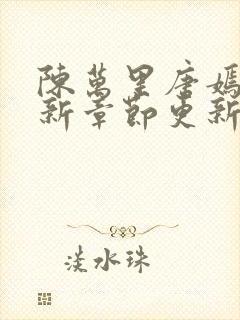 陳萬里唐嫣
新章節更新
淡水珠